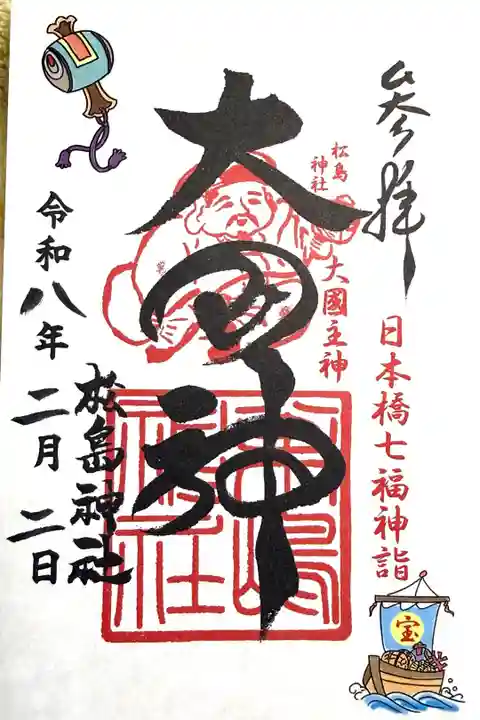 参拝
日本橋七福神詣
松島神社
大國主神
大国神
松島神社
松島神社
令和八年二月二日
宝